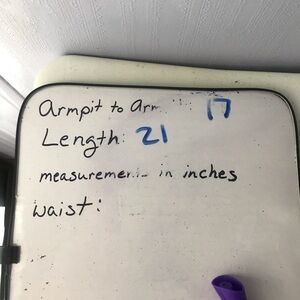 armpit to arm 17
Length: 21
measurements in inches
waist: